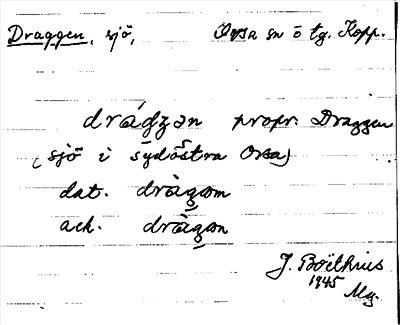 Draggen, sjö, Orsa sn ö tg. Kopp.
drágʒən propr. Draggen
(sjö i sydöstra Orsa)
dat. dràgom
ack. dràgən
J. Boëthius
1945